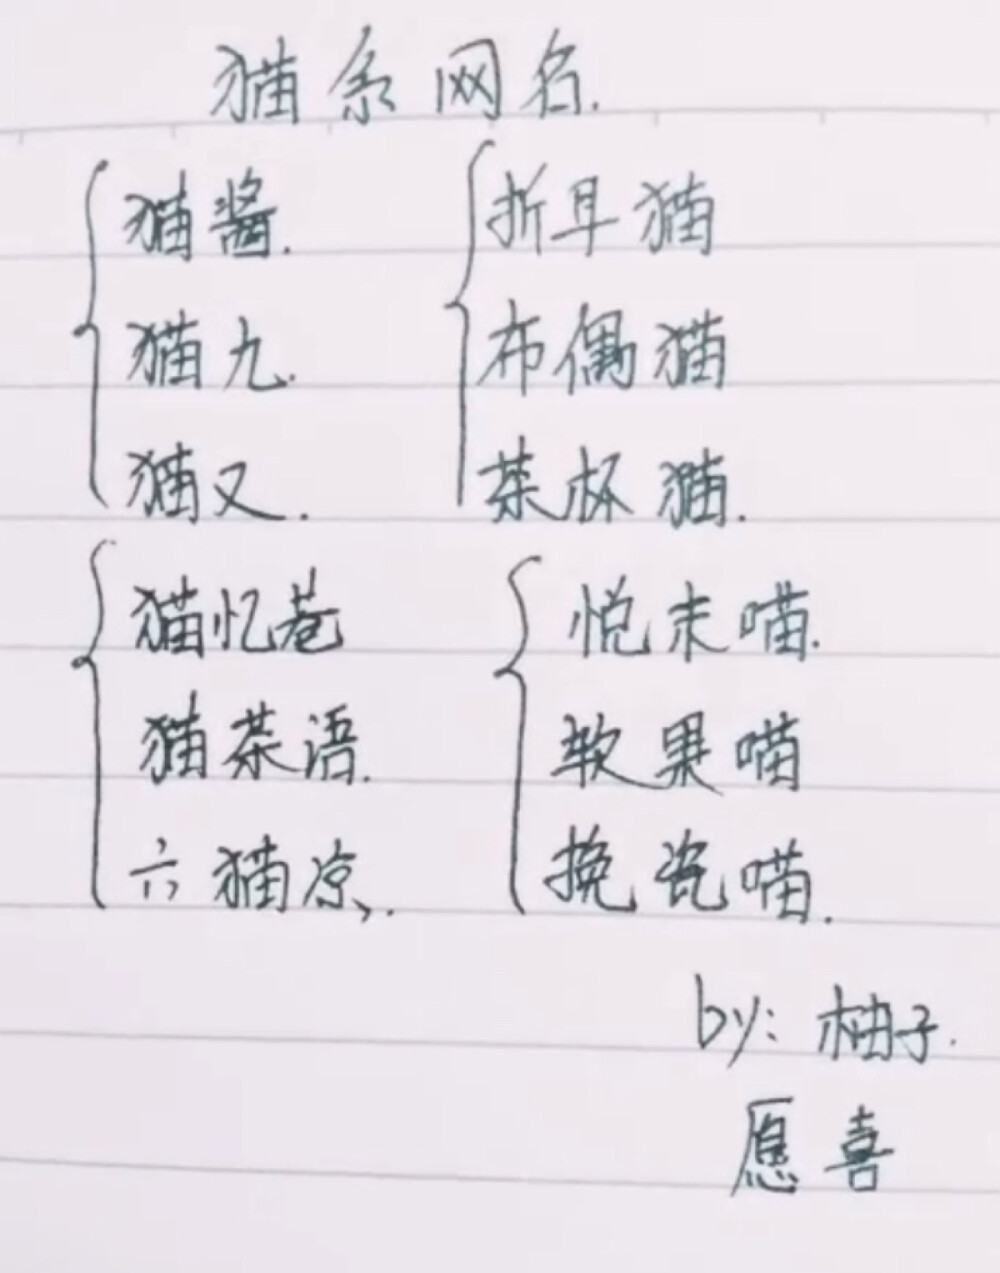 猫系网名.
猫酱.
猫九.
猫又.
折耳猫
布偶猫
茶杯猫.
猫忆巷
猫茶语.
六猫凉.
悦末喵.
软果喵
挽瓷喵.
by: 柚子.
愿喜